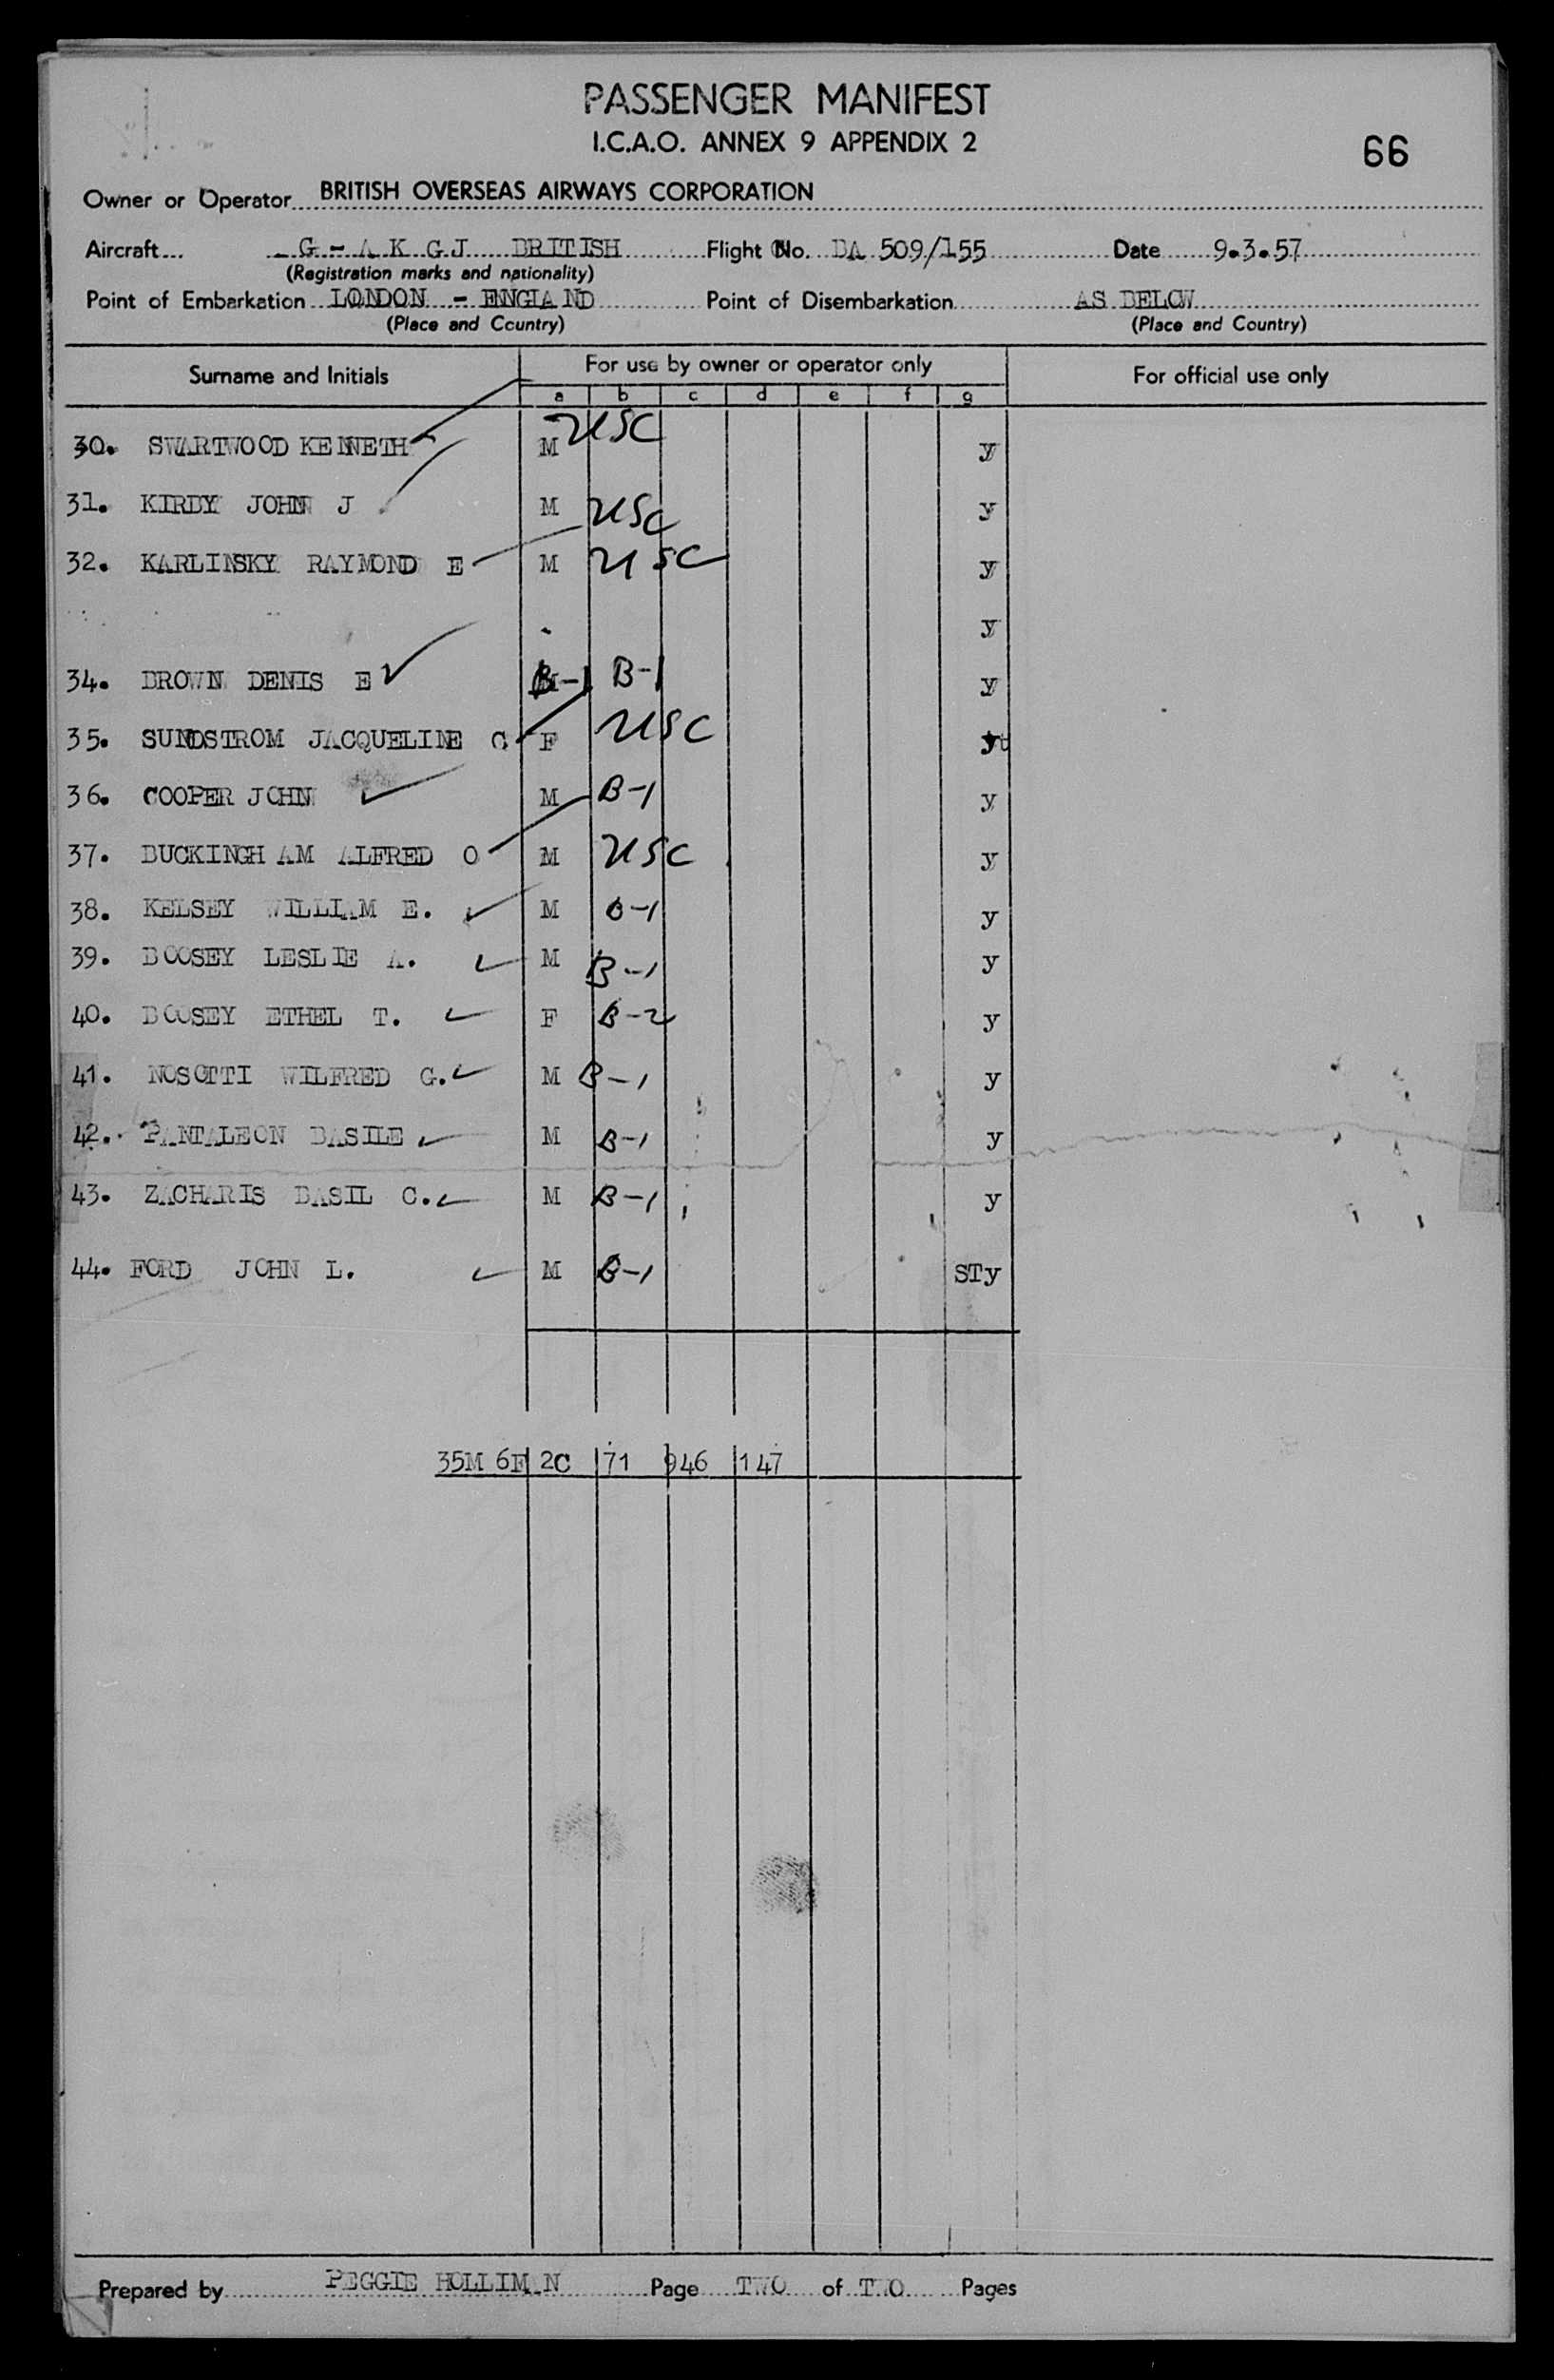 PASSENGER MANIFEST
I.C.A.O. ANNEX 9 APPENDIX 2
66
Owner or Operator BRITISH OVERSEAS AIRWAYS CORPORATION
Aircraft G - A K G J BRITISH Flight No. BA 509/155 Date 9.3.57
(Registration marks and nationality)
Point of Embarkation LONDON - ENGLAND Point of Disembarkation AS BELOW
(Place and Country) (Place and Country)
Surname and Initials For use by owner or operator only For official use only
a b c d e f g
30. SWARTWOOD KENNETH M USC y
31. KIRBY JOHN J M USC y
32. KARLINSKY RAYMOND E M USC y
y
34. BROWN DENIS E B-1 B-1 y
35. SUNDSTROM JACQUELINE C F USC y
36. COOPER JOHN M B-1 y
37. BUCKINGHAM ALFRED O M USC y
38. KELSEY WILLIAM E. M B-1 y
39. BOOSEY LESLIE A. M B-1 y
40. BOOSEY ETHEL T. F B-2 y
41. NOSOTTI WILFRED G. M B-1 y
42. PANTALEON BASILE M B-1 y
43. ZACHARIS BASIL C. M B-1 y
44. FORD JOHN L. M B-1 STy
35M 6F 2C 71 946 147
Prepared by PEGGIE HOLLIMAN Page TWO of TWO Pages